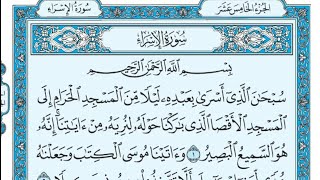 الجزء الخامس عشر
سورة الإسراء
سورة الإسراء
بِسْمِ اللَّهِ الرَّحْمَٰنِ الرَّحِيمِ
سُبْحَٰنَ الَّذِىٓ أَسْرَىٰ بِعَبْدِهِۦ لَيْلًا مِّنَ الْمَسْجِدِ الْحَرَامِ إِلَى
الْمَسْجِدِ الْأَقْصَا الَّذِى بَٰرَكْنَا حَوْلَهُۥ لِنُرِيَهُۥ مِنْ ءَايَٰتِنَآ إِنَّهُۥ
هُوَ السَّمِيعُ الْبَصِيرُ ١ وَءَاتَيْنَا مُوسَى الْكِتَٰبَ وَجَعَلْنَٰهُ